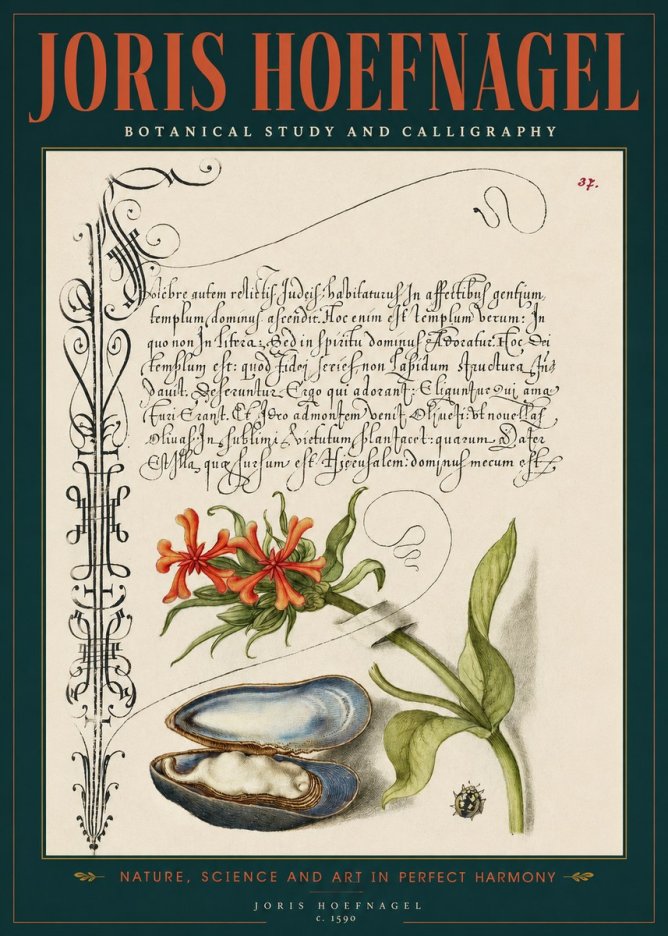 JORIS HOEFNAGEL
BOTANICAL STUDY AND CALLIGRAPHY
37.
autem relictis Judeis habitaturus In affectibus gentium,
templum dominus ascendit. Hoc enim est templum verum: In
quo non In litera: Sed in spiritu dominus Adoratur. Hoc Dei
templum est: quod fidei series non Lapidum structura
Deseruntur Ergo qui adorant: Eliguntur qui ama
turi Erant. Et Ideo admontem venit Oliueti: vt nouellas
Oliuas In sublimi plantaret: quarum Mater
Est Illa quæ sursum est Hierusalem: dominus mecum est
NATURE, SCIENCE AND ART IN PERFECT HARMONY
JORIS HOEFNAGEL
c. 1590